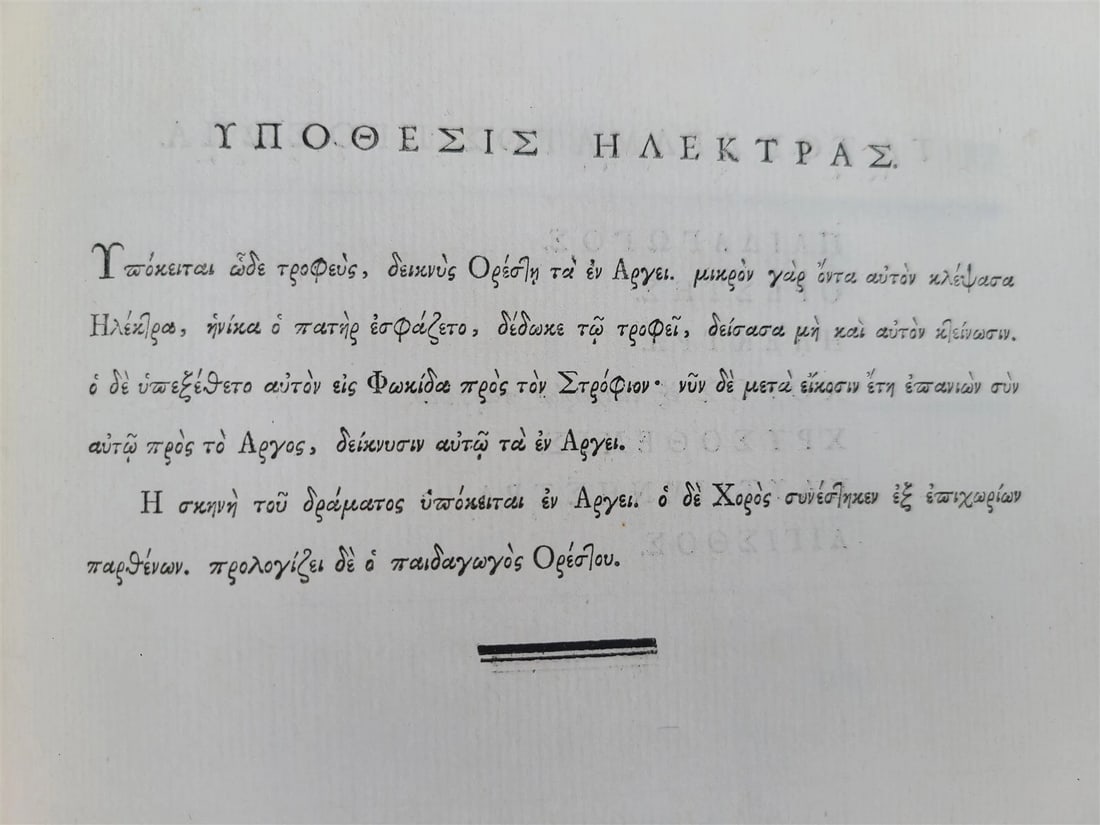 ΥΠΟΘΕΣΙΣ ΗΛΕΚΤΡΑΣ.
Υπόκειται ὧδε τροφεὺς, δεικνὺς Ορέστῃ τὰ ἐν Αργει. μικρὸν γὰρ ὄντα αὐτὸν κλέψασα
Ηλέκτρα, ἡνίκα ὁ πατὴρ ἐσφάζετο, δέδωκε τῷ τροφεῖ, δείσασα μὴ καὶ αὐτὸν κτείνωσιν.
ὁ δὲ ὑπεξέθετο αὐτὸν εἰς Φωκίδα πρὸς τὸν Στρόφιον· νῦν δὲ μετὰ εἴκοσιν ἔτη ἐπανιὼν σὺν
αὐτῷ πρὸς τὸ Αργος, δείκνυσιν αὐτῷ τὰ ἐν Αργει.
Η σκηνὴ τοῦ δράματος ὑπόκειται ἐν Αργει. ὁ δὲ Χορὸς συνέστηκεν ἐξ ἐπιχωρίων
παρθένων. προλογίζει δὲ ὁ παιδαγωγὸς Ορέστου.